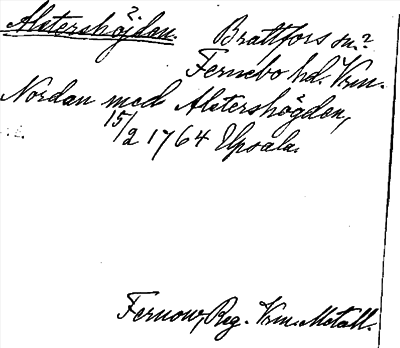 Alstershöjdan. Brattfors sn.?
Fernebo hd. Vrm.
Nordan med Alstershögden,
15/2 1764 Upsala.
Fernow, Reg. Vrm. Metall.